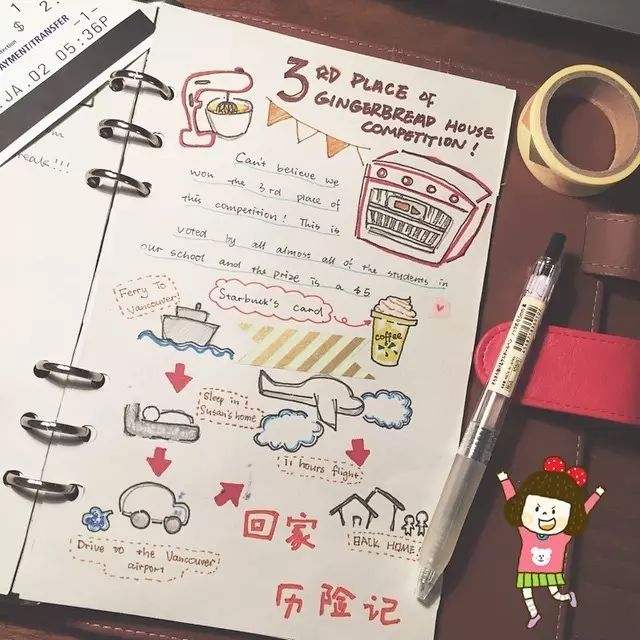 1
$ 2.
PAYMENT/TRANSFER -1
JA.02 05:36P
eak!!!
3RD PLACE OF
GINGERBREAD HOUSE
COMPETITION!
Can't believe we
won the 3rd place of
this competition! This is
voted by all almost all of the students in
our school and the prize is a $5
Starbuck's card
coffee
Ferry To
Vancouver
Sleep in
Susan's home
11 hours flight
Drive to the Vancouver
airport
BACK HOME!
回家
历险记